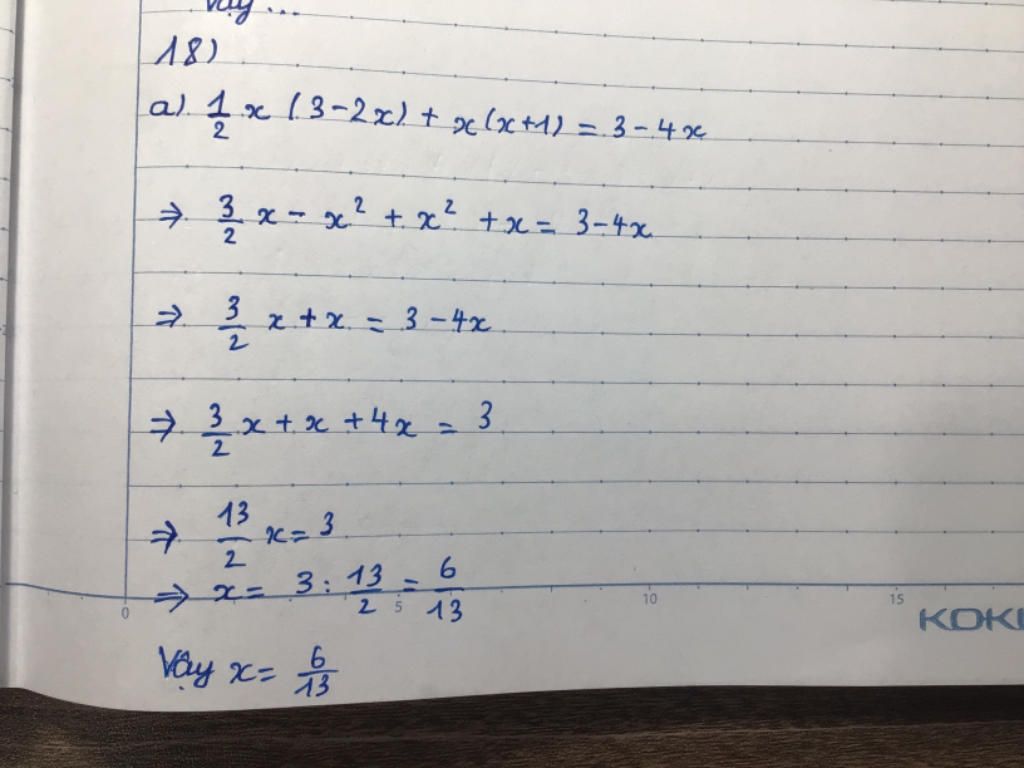 Vậy...
18)
a) \frac{1}{2}x (3-2x) + x(x+1) = 3-4x
⇒ \frac{3}{2}x - x² + x² + x = 3-4x
⇒ \frac{3}{2}x + x = 3-4x
⇒ \frac{3}{2}x + x + 4x = 3
⇒ \frac{13}{2}x = 3
⇒ x = 3 : \frac{13}{2} = \frac{6}{13}
0 5 10 15
Vậy x = \frac{6}{13}